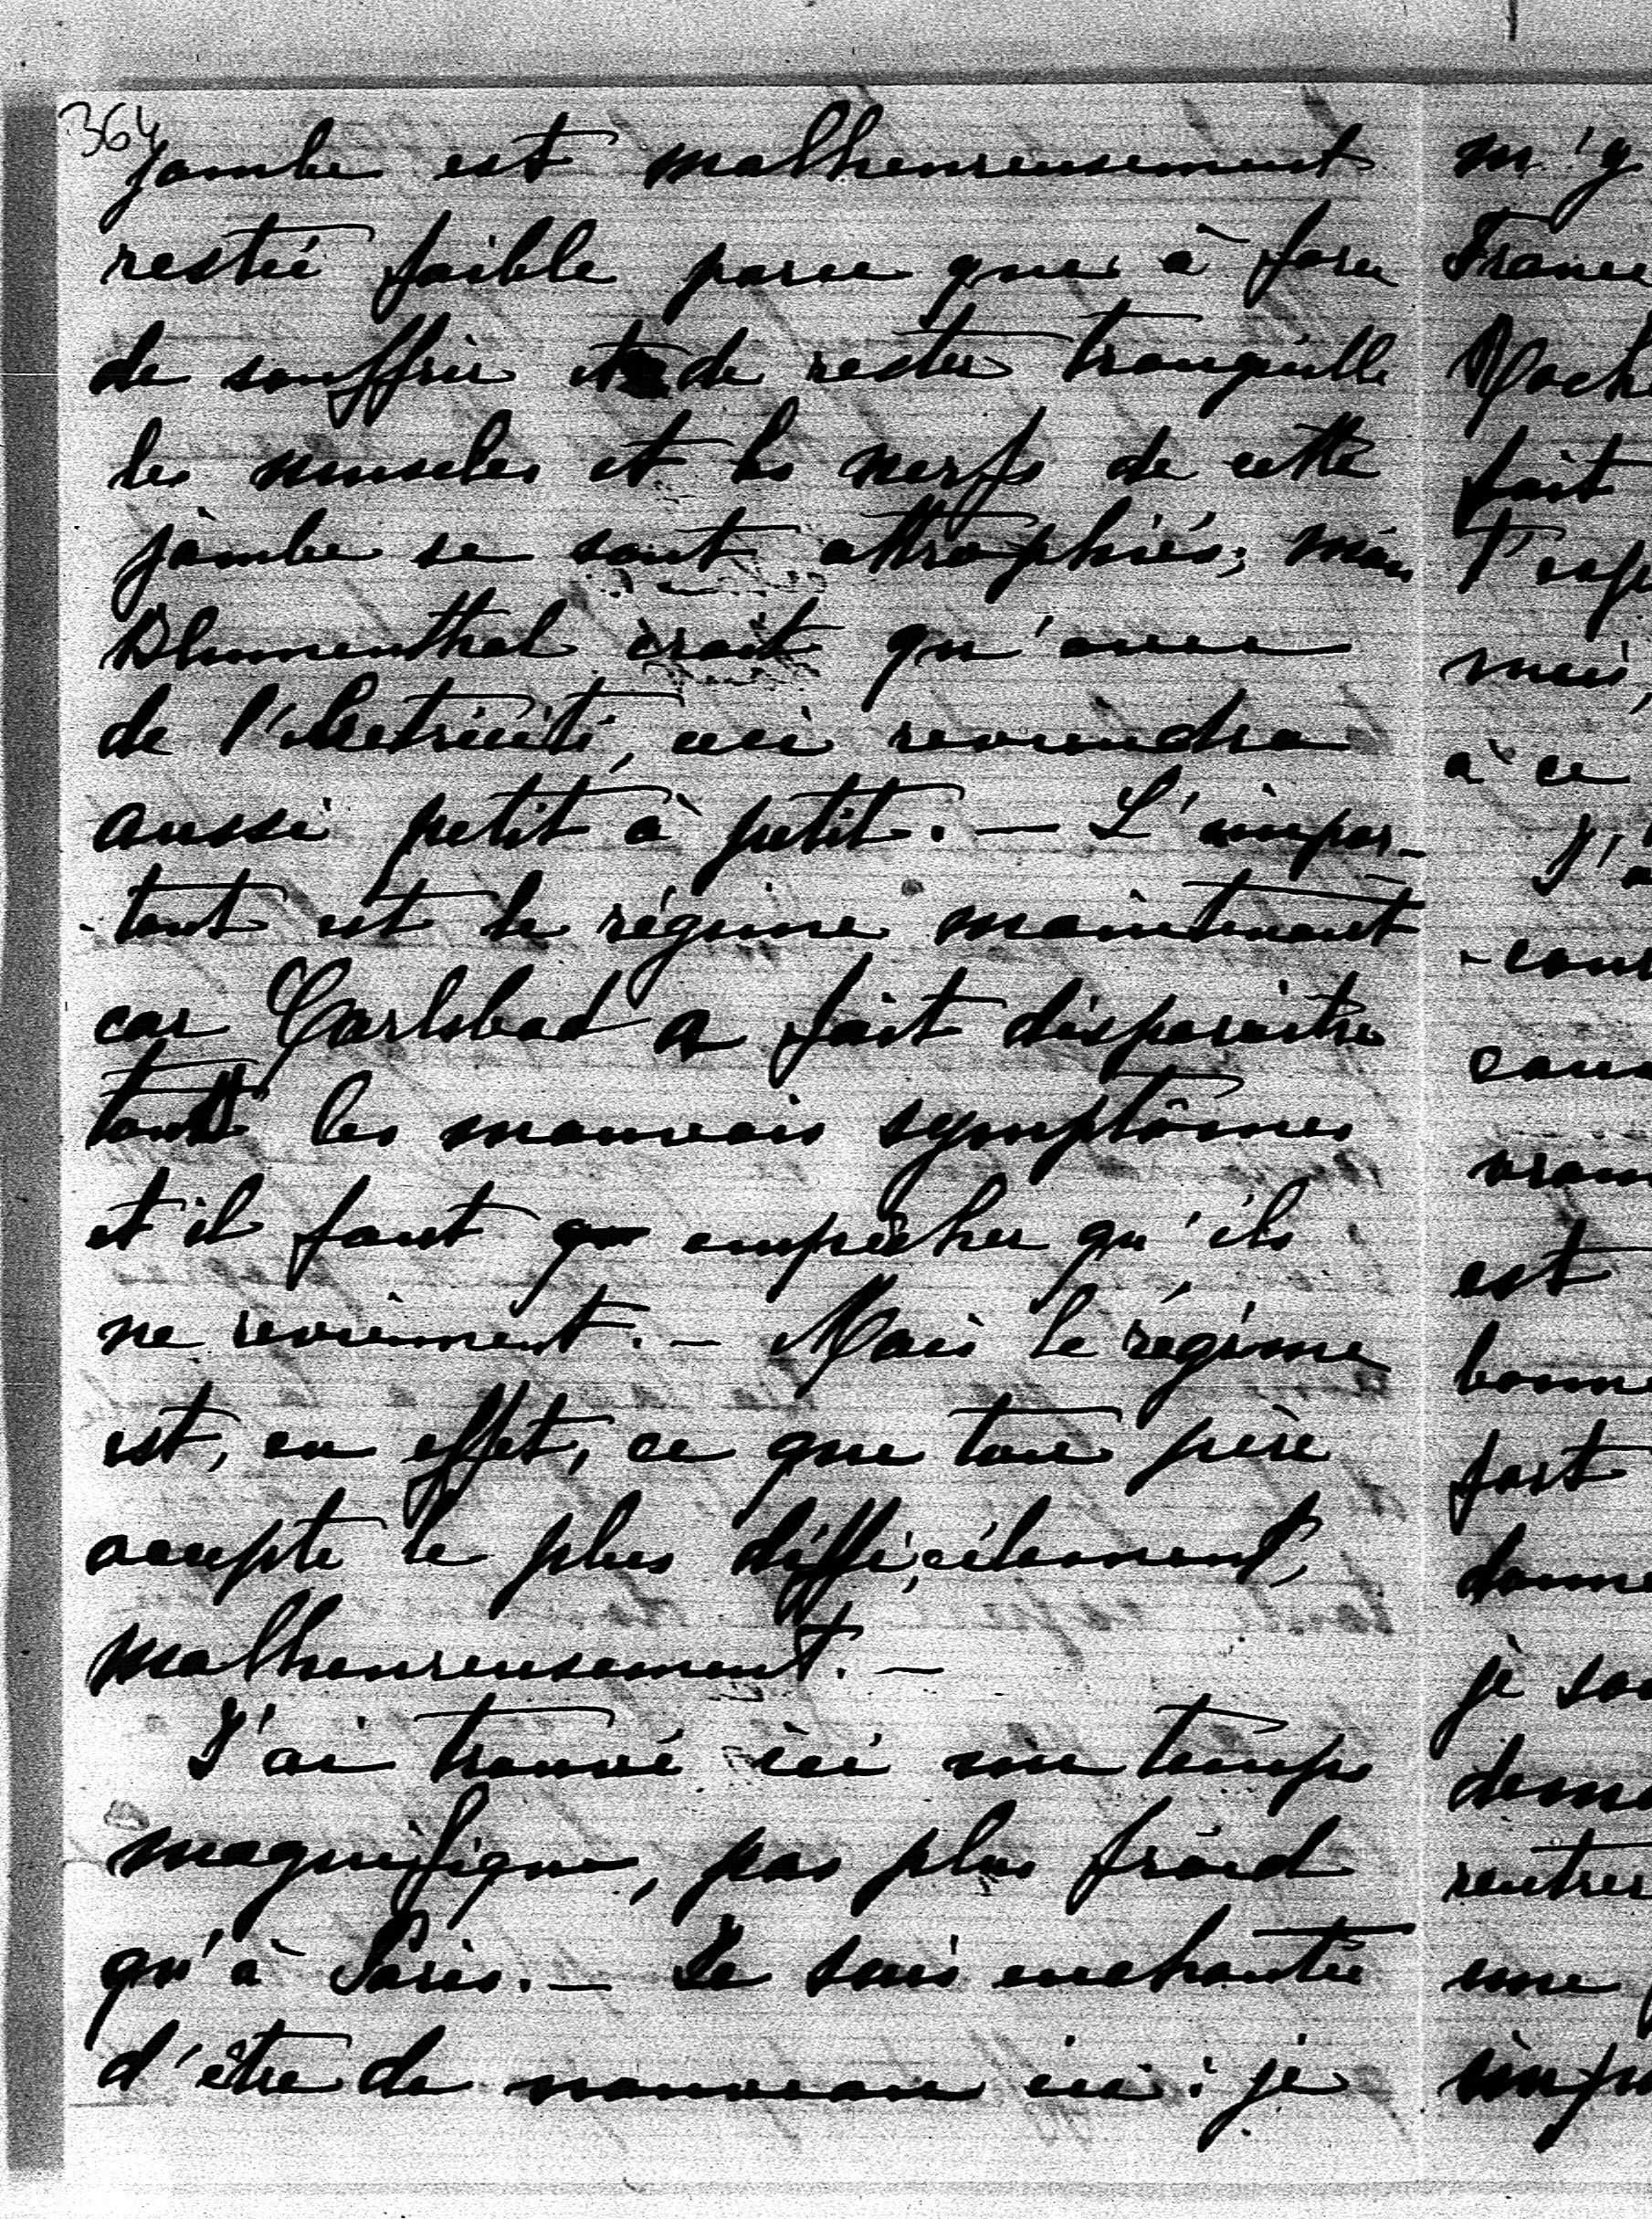 364
jambe est malheureusement
restée faible parce que à force
de souffrir et de rester tranquille
les muscles et les nerfs de cette
jambe se sont attrophiés; mais
Blumenthal croit qu'avec
de l'électricité, ceci reviendra
aussi petit à petit. — L'impor-
-tant est le régime maintenant
car Carlsbad a fait disparaître
tous les mauvais symptômes
et il faut empêcher qu'ils
ne reviennent. — Mais le régime
est, en effet, ce que ton père
accepte le plus difficilement,
malheureusement. —
J'ai trouvé ici un temps
magnifique, pas plus froid
qu'à Paris. — Je suis enchantée
d'être de nouveau ici: je
m'y
France
fait
à ce
J'a
est
bonne
fort
donne
je
rentrer
une